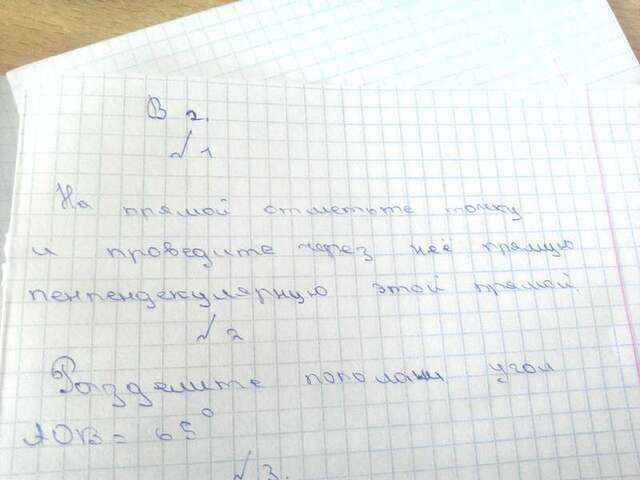 В 2.
№ 1
На прямой отметьте точку
и проведите через неё прямую
пенпендекулярную этой прямой.
№ 2
Разделите пополам угол
AOB = 65°
№ 3.